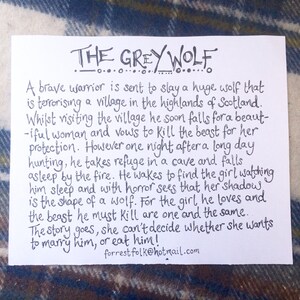 THE GREY WOLF
A brave warrior is sent to slay a huge wolf that
is terrorising a village in the highlands of Scotland.
Whilst visiting the village he soon falls for a beaut-
-iful woman and vows to kill the beast for her
protection. However one night after a long day
hunting, he takes refuge in a cave and falls
asleep by the fire. He wakes to find the girl watching
him sleep and with horror sees that her shadow
is the shape of a wolf. For the girl he loves and
the beast he must kill are one and the same.
The story goes, she can't decide whether she wants
to marry him, or eat him!
forrestfolk@hotmail.com